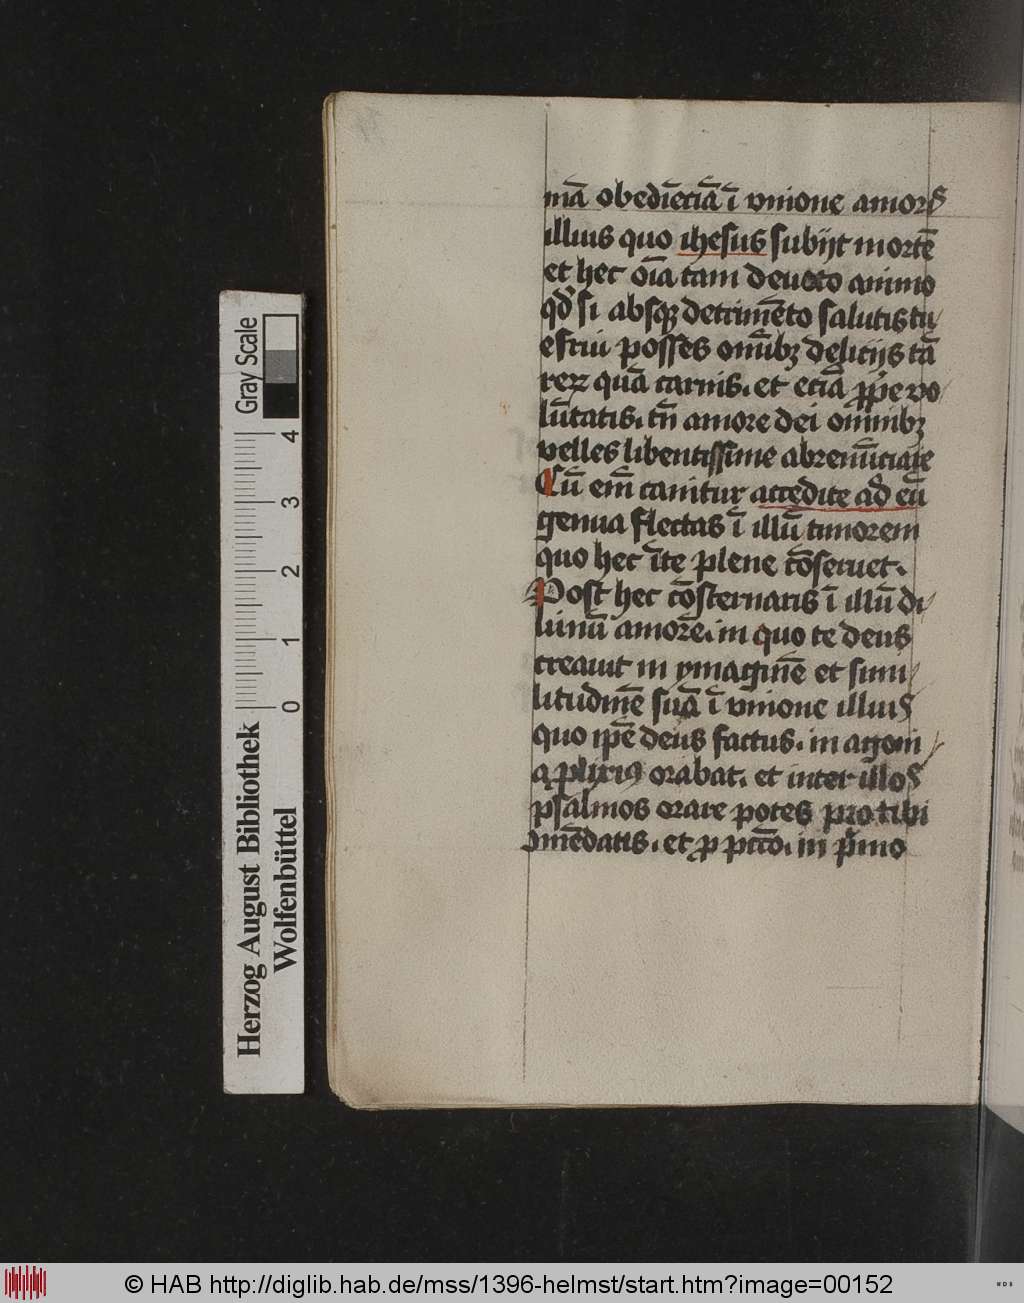 mā obediēciā ī vnione amors
illius quo ihesus subijt mortē
et hec oīa tam deuoto animo
qd si absqz detrimēto salutis tu
e frui posses omībz delicijs tā
rerz quā carnis. et eciā pp̄e vo
lūtatis. tn̄ amore dei omnibz
velles libentissime abrenūciare
Cū em̄ canitur accedite ad eū
genua flectas ī illū timorem
quo hec īte plene cōseruet.
Post hec cōsternaris ī illū di
uinū amorē. in quo te deus
creauit in ymaginē et simi
litudinē suā ī vnione illius
quo ip̄e deus factus. in agoni
a plixius orabat. et inter illos
psalmos orare potes pro tibi
omēdatis. et p pctō. in pmo
Gray Scale
4
3
2
1
0
Herzog August Bibliothek
Wolfenbüttel
© HAB http://diglib.hab.de/mss/1396-helmst/start.htm?image=00152
WDB